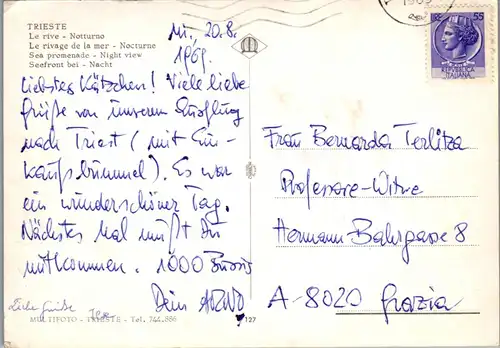 TRIESTE
Le rive - Notturno
Le rivage de la mer - Nocturne
Sea promenade - Night view
Seefront bei - Nacht
Mi, 20.8.
1969.
Liebstes Kätzchen! Viele liebe
Grüße von unserem Ausflug
nach Triest (mit Ein-
kaufsbummel). Es war
ein wunderschöner Tag.
Nächstes Mal mußt Du
mitkommen. 1000 Bussis
Dein ARNO
Liebe Grüße
MULTIFOTO - TRIESTE - Tel. 744.886
127
LIRE 55
ITALIANA
Frau Bernarda Terlitza
Professore-Witwe
Hermann Bahrgasse 8
A-8020 Grazia